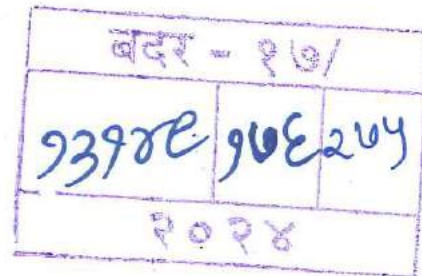 बदर - १७/
१३१४९ १७६ २७५
२०२४